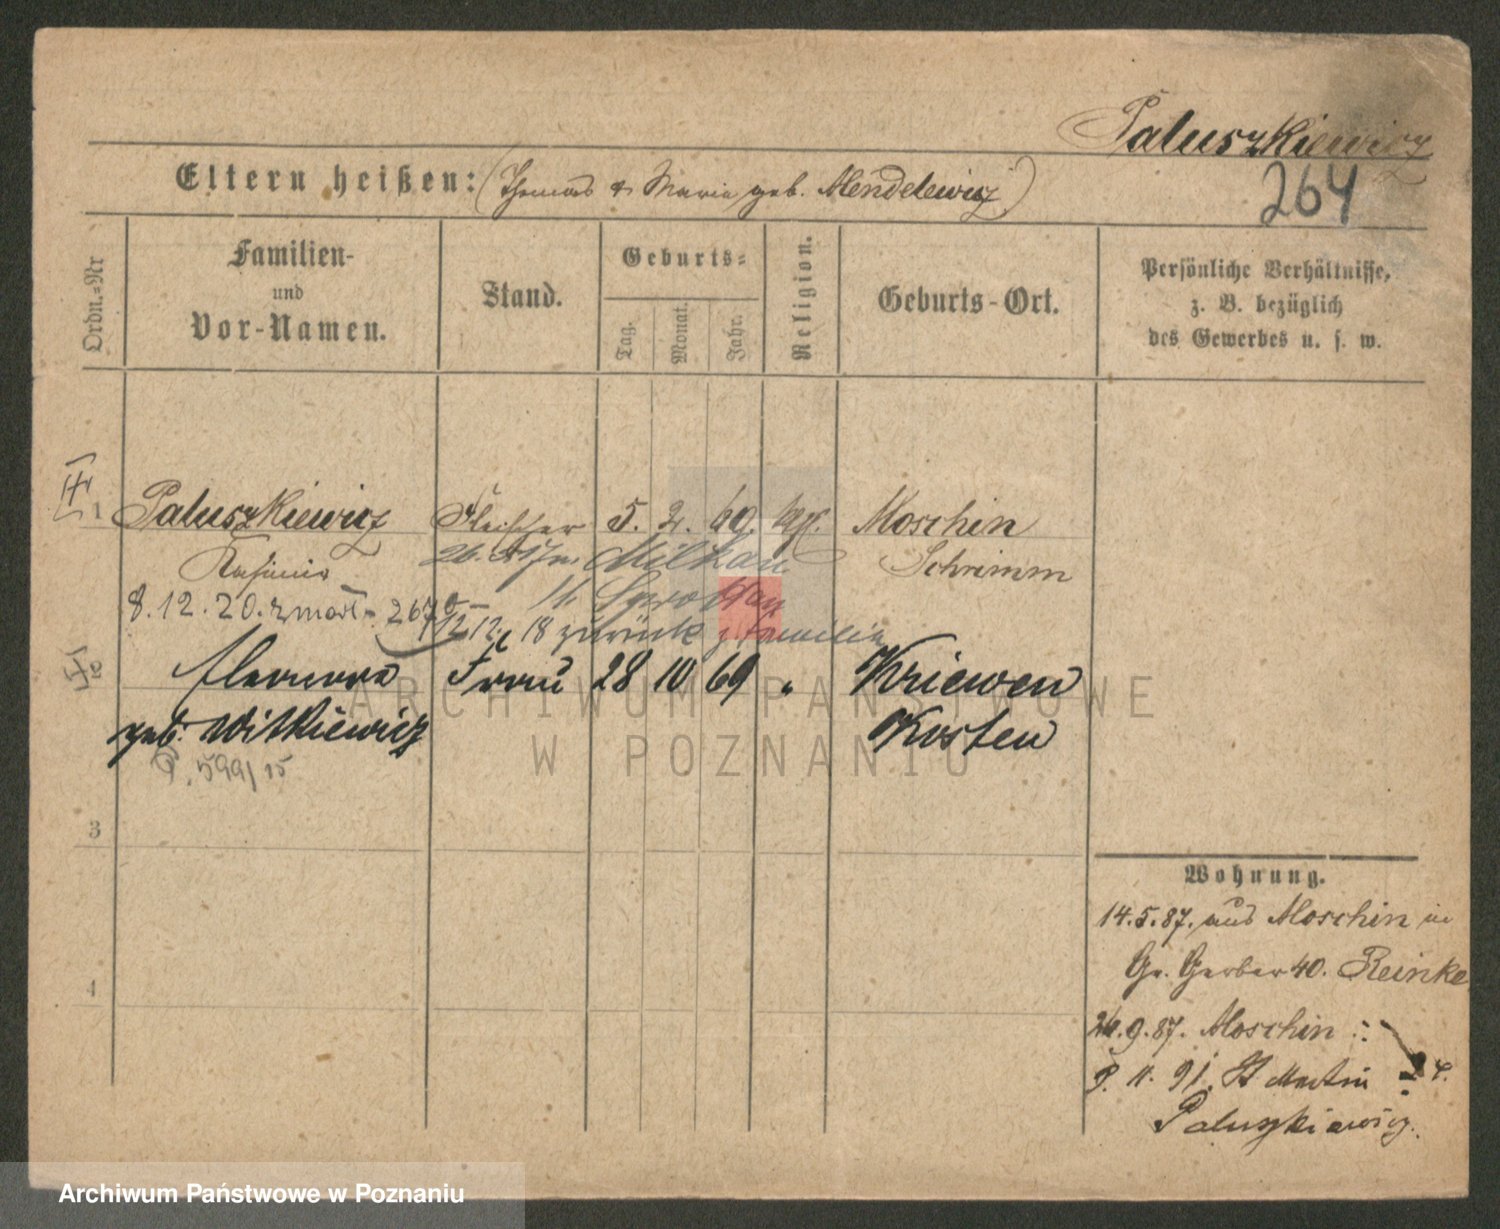 Paluszkiewicz
264
Eltern heißen: (Thomas & Maria geb. Mendelewicz)
Ordn.-Nr
Familien-
und
Vor-Namen.
Stand.
Geburts-
Tag.
Monat.
Jahr.
Religion.
Geburts-Ort.
Persönliche Verhältnisse,
z. B. bezüglich
des Gewerbes u. s. w.
1 Paluszkiewicz Fleischer 5. 2. 60. kath. Moschin
Kasimir Milkau Schrimm
8.12.20. zmarł Sprottau
12.12. 18 zurück z. Familie
Eleonora Frau 28 10 69 " Kriewen
geb. Witkiewicz Kosten
P. 599/15
3
4
Wohnung.
14.5.87. aus Moschin in
Gr. Gerber 40. Reinke
26.9.87. Moschin
9. 11. 91. St Martin 24.
Paluszkiewicz.
ARCHIWUM PAŃSTWOWE
W POZNANIU
Archiwum Państwowe w Poznaniu